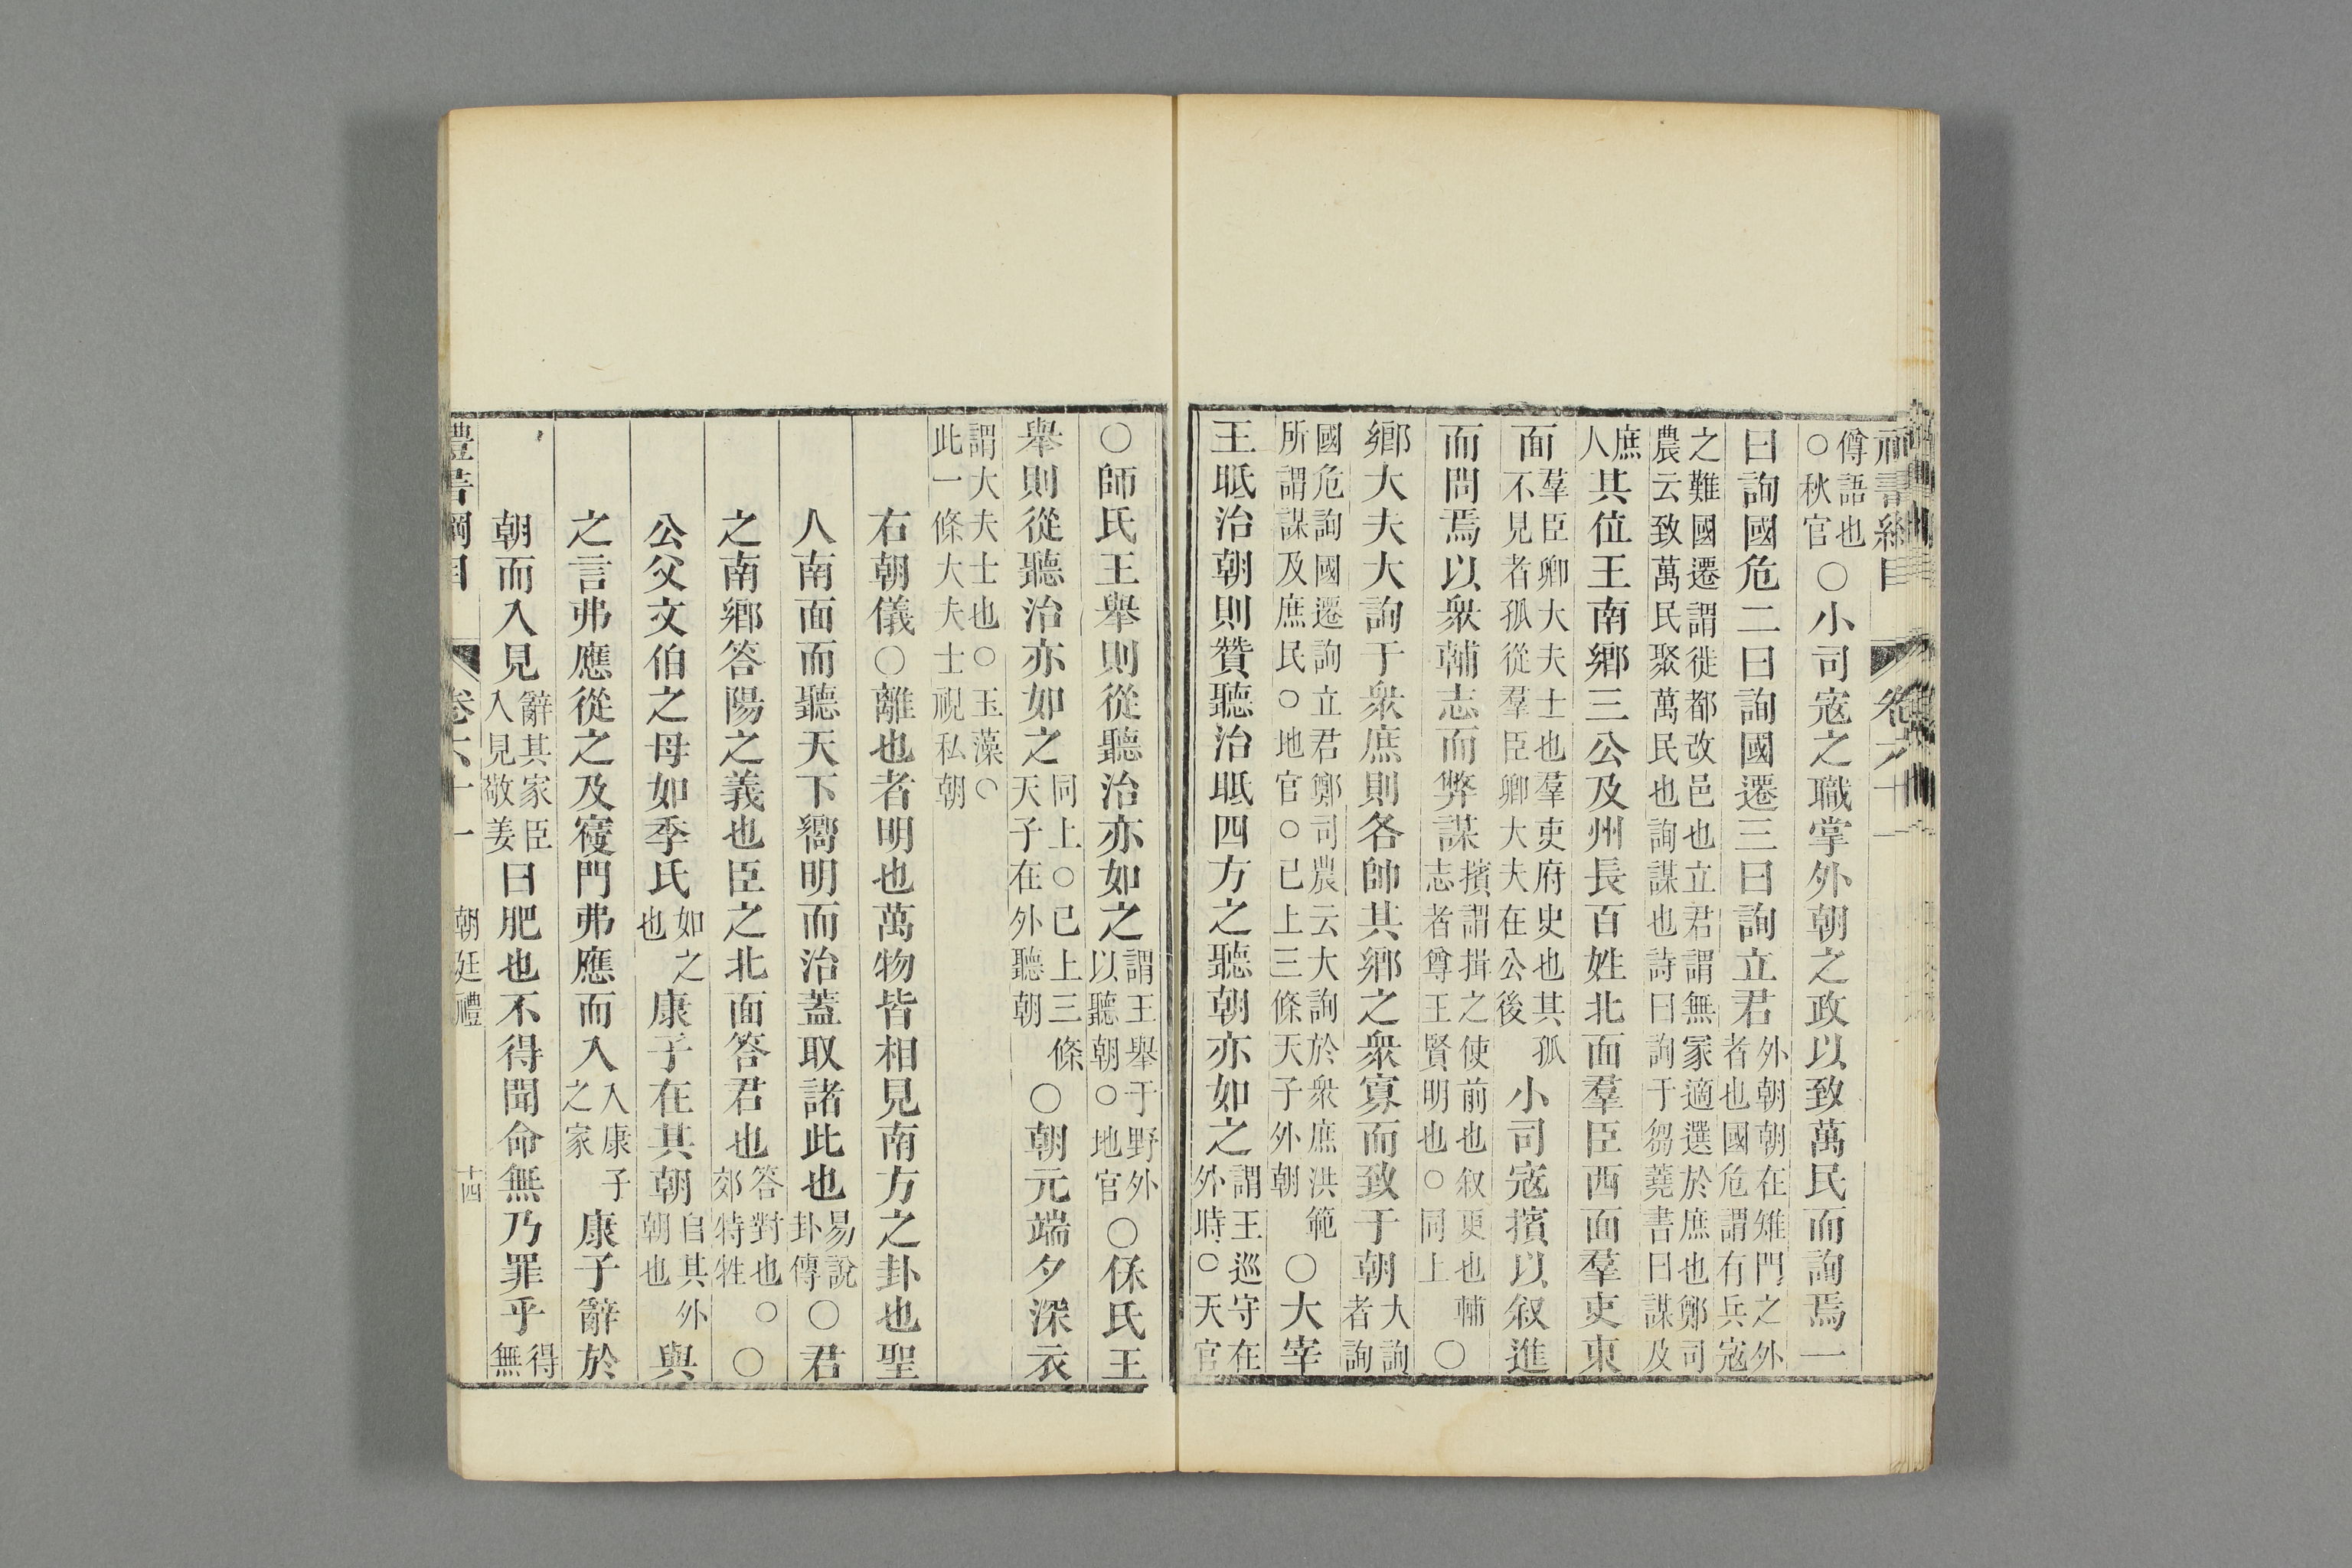 禮書綱目 卷六十一
僔語也○秋官○小司寇之職掌外朝之政以致萬民而詢焉一
曰詢國危二曰詢國遷三曰詢立君外朝朝在雉門之外者也國危謂有兵寇
之難國遷謂徙都改邑也立君謂無冢適選於庶也鄭司農云致萬民聚萬民也詢謀也詩曰詢于芻蕘書曰謀及
庶人其位王南鄉三公及州長百姓北面羣臣西面羣吏東
面羣臣卿大夫士也羣吏府史也其孤不見者孤從羣臣卿大夫在公後小司寇擯以叙進
而問焉以衆輔志而弊謀擯謂揖之使前也叙更也輔志者尊王賢明也○同上○
鄉大夫大詢于衆庶則各帥其鄉之衆寡而致于朝大詢者詢
國危詢國遷詢立君鄭司農云大詢於衆庶洪範所謂謀及庶民○地官○已上三條天子外朝○大宰
王眡治朝則贊聽治眡四方之聽朝亦如之謂王巡守在外時○天官
○師氏王舉則從聽治亦如之謂王舉于野外以聽朝○地官○保氏王
舉則從聽治亦如之同上○已上三條天子在外聽朝○朝元端夕深衣
謂大夫士也○玉藻○此一條大夫士視私朝
右朝儀○離也者明也萬物皆相見南方之卦也聖
人南面而聽天下嚮明而治蓋取諸此也易說卦傳○君
之南鄉答陽之義也臣之北面答君也答對也○郊特牲○
公父文伯之母如季氏如之也康子在其朝自其外朝也與
之言弗應從之及寢門弗應而入入康子之家康子辭於
朝而入見辭其家臣入見敬姜曰肥也不得聞命無乃罪乎得無
禮書綱目 卷六十一 朝廷禮 十四